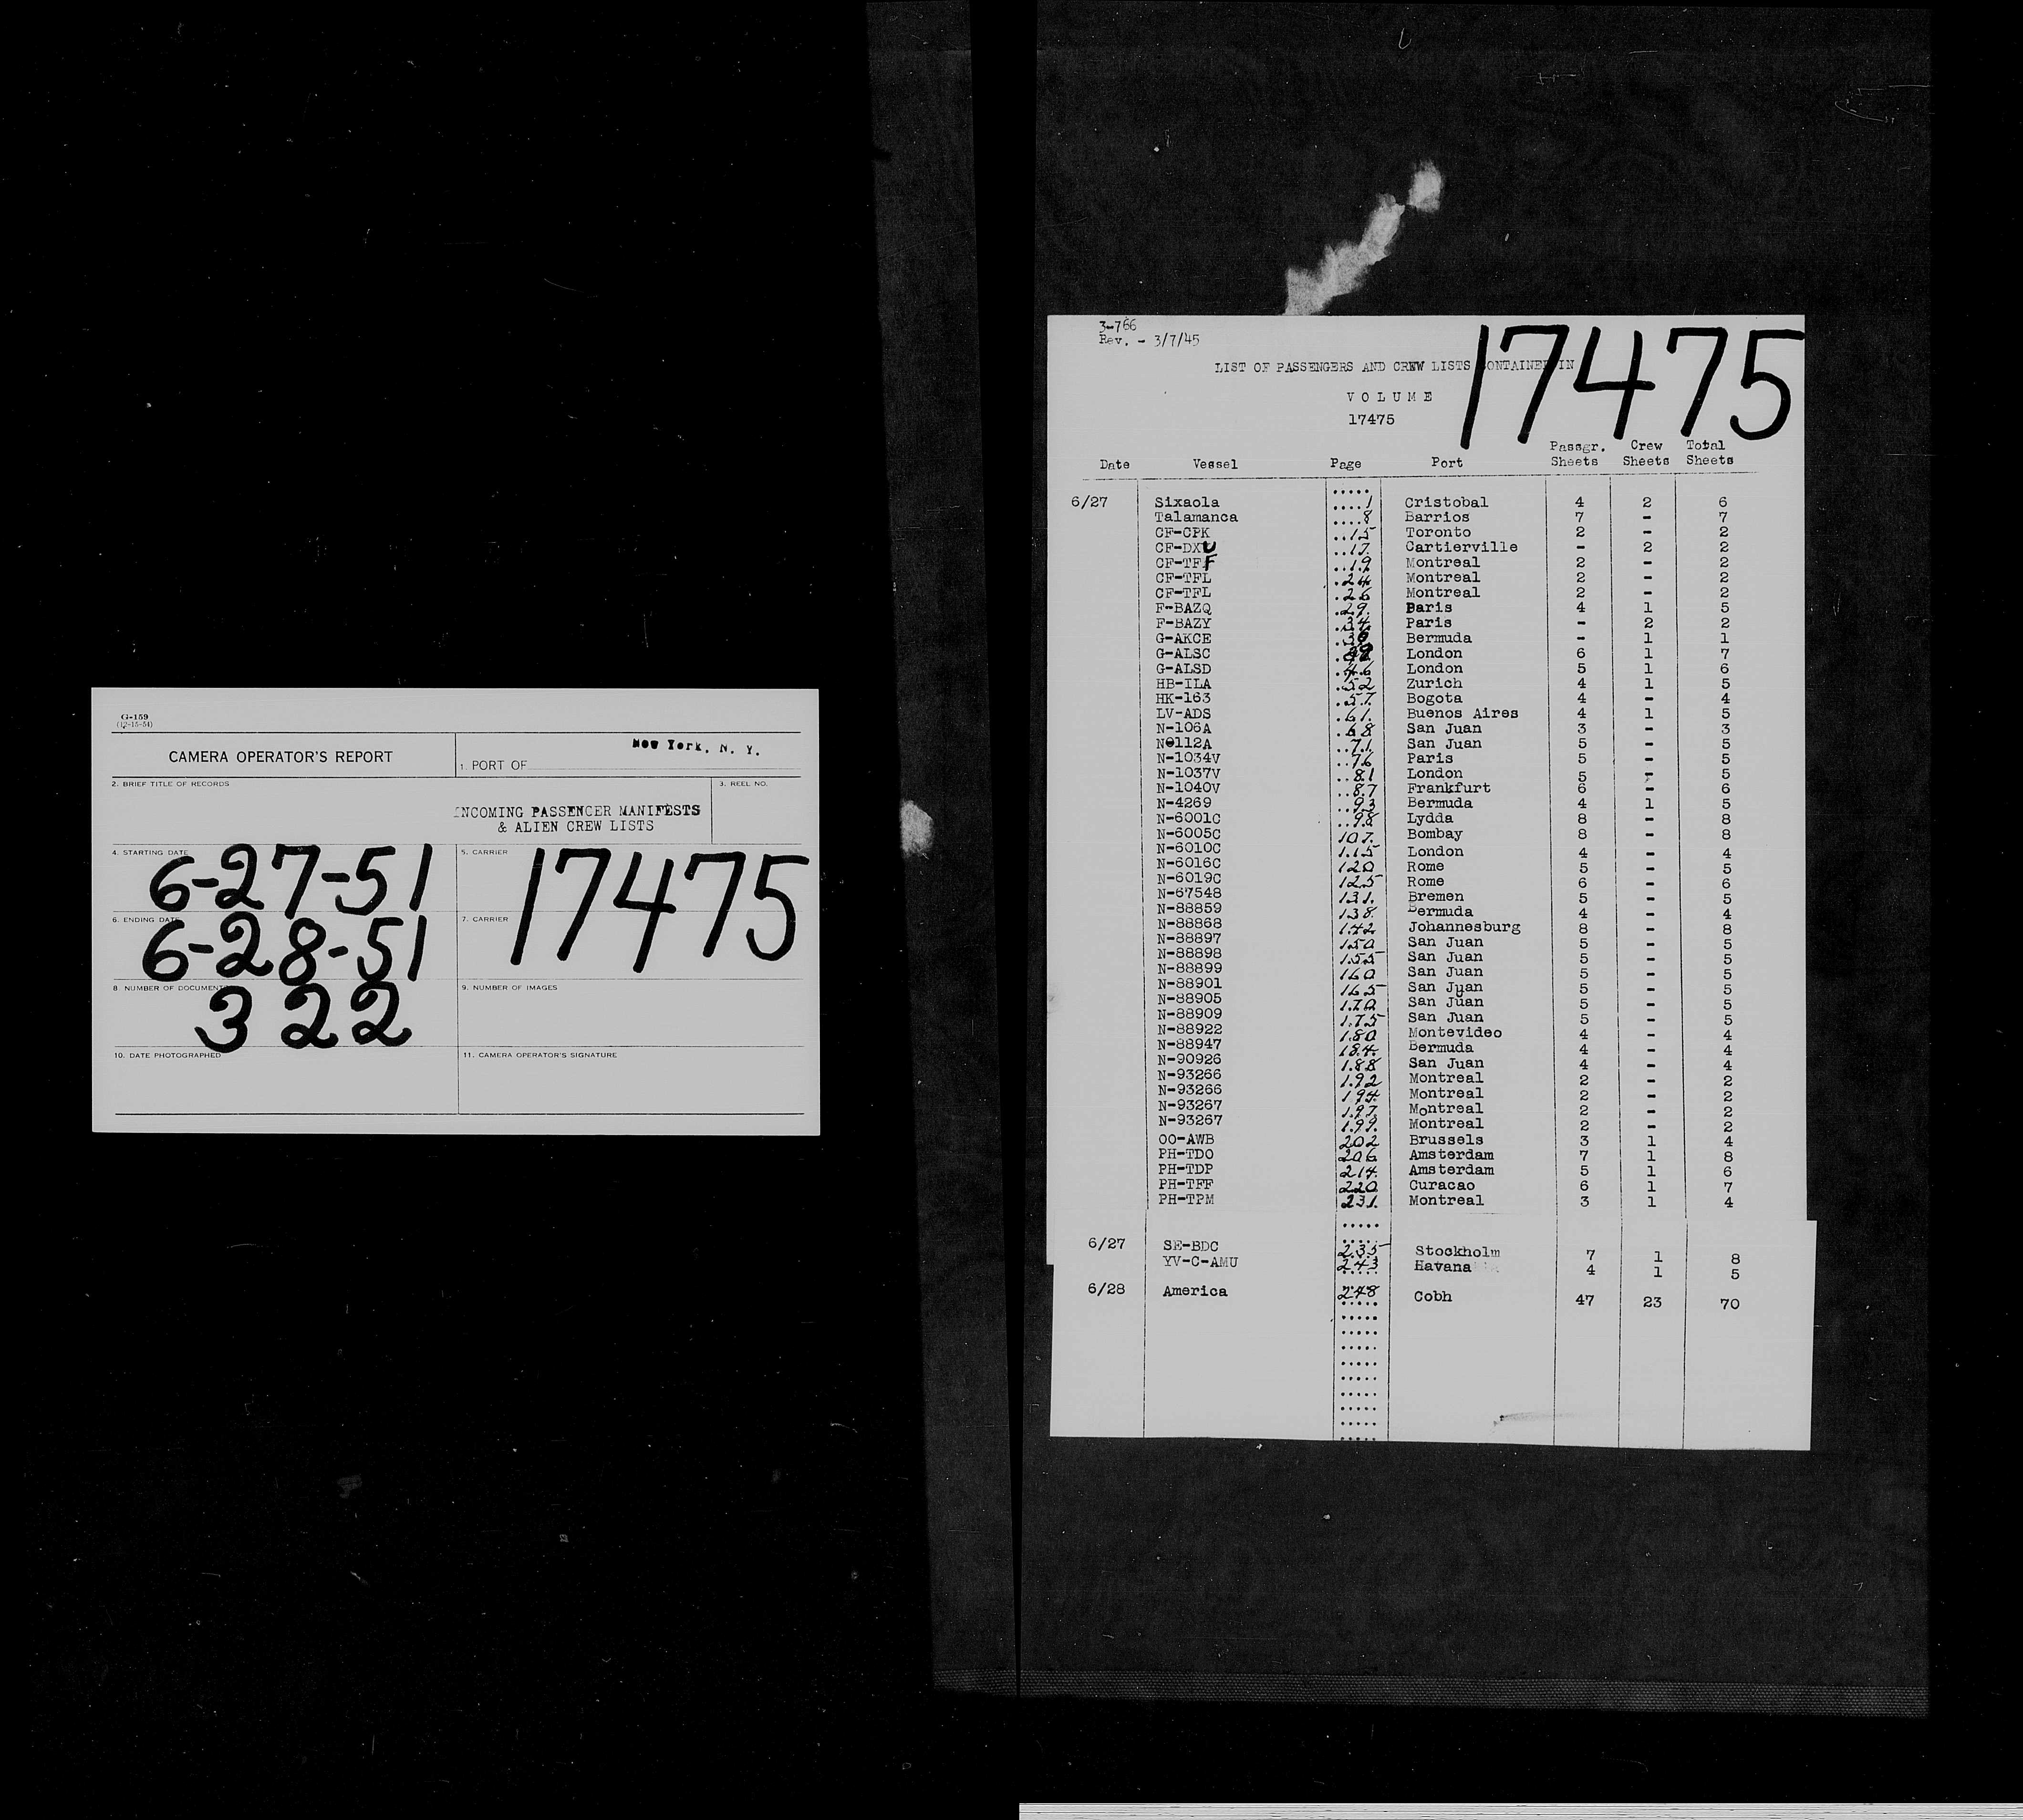 G-159
(12-15-54)
CAMERA OPERATOR'S REPORT
New York, N. Y.
1. PORT OF
2. BRIEF TITLE OF RECORDS
3. REEL NO.
INCOMING PASSENGER MANIFESTS
& ALIEN CREW LISTS
4. STARTING DATE
6-27-51
5. CARRIER
17475
6. ENDING DATE
6-28-51
7. CARRIER
8. NUMBER OF DOCUMENTS
322
9. NUMBER OF IMAGES
10. DATE PHOTOGRAPHED
11. CAMERA OPERATOR'S SIGNATURE
3-766
Rev. - 3/7/45
17475
LIST OF PASSENGERS AND CREW LISTS CONTAINED IN
VOLUME
17475
Date Vessel Page Port Passgr. Sheets Crew Sheets Total Sheets
6/27 Sixaola 1 Cristobal 4 2 6
Talamanca 8 Barrios 7 - 7
CF-CPK 15 Toronto 2 - 2
CF-DXU 17 Cartierville - 2 2
CF-TFF 19 Montreal 2 - 2
CF-TFL 24 Montreal 2 - 2
CF-TFL 26 Montreal 2 - 2
F-BAZQ 29 Paris 4 1 5
F-BAZY 34 Paris - 2 2
G-AKCE Bermuda - 1 1
G-ALSC London 6 1 7
G-ALSD 46 London 5 1 6
HB-ILA 52 Zurich 4 1 5
HK-163 57 Bogota 4 - 4
LV-ADS 61 Buenos Aires 4 1 5
N-106A 68 San Juan 3 - 3
N-112A 71 San Juan 5 - 5
N-1034V 76 Paris 5 - 5
N-1037V 81 London 5 - 5
N-1040V 87 Frankfurt 6 - 6
N-4269 93 Bermuda 4 1 5
N-6001C 98 Lydda 8 - 8
N-6005C 107 Bombay 8 - 8
N-6010C 115 London 4 - 4
N-6016C 120 Rome 5 - 5
N-6019C 125 Rome 6 - 6
N-67548 131 Bremen 5 - 5
N-88859 138 Bermuda 4 - 4
N-88868 142 Johannesburg 8 - 8
N-88897 150 San Juan 5 - 5
N-88898 155 San Juan 5 - 5
N-88899 160 San Juan 5 - 5
N-88901 165 San Juan 5 - 5
N-88905 170 San Juan 5 - 5
N-88909 175 San Juan 5 - 5
N-88922 180 Montevideo 4 - 4
N-88947 184 Bermuda 4 - 4
N-90926 188 San Juan 4 - 4
N-93266 192 Montreal 2 - 2
N-93266 194 Montreal 2 - 2
N-93267 197 Montreal 2 - 2
N-93267 199 Montreal 2 - 2
OO-AWB 202 Brussels 3 1 4
PH-TDO 206 Amsterdam 7 1 8
PH-TDP 214 Amsterdam 5 1 6
PH-TFF 220 Curacao 6 1 7
PH-TPM 231 Montreal 3 1 4
6/27 SE-BDC 235 Stockholm 7 1 8
YV-C-AMU 243 Havana 4 1 5
6/28 America 248 Cobh 47 23 70